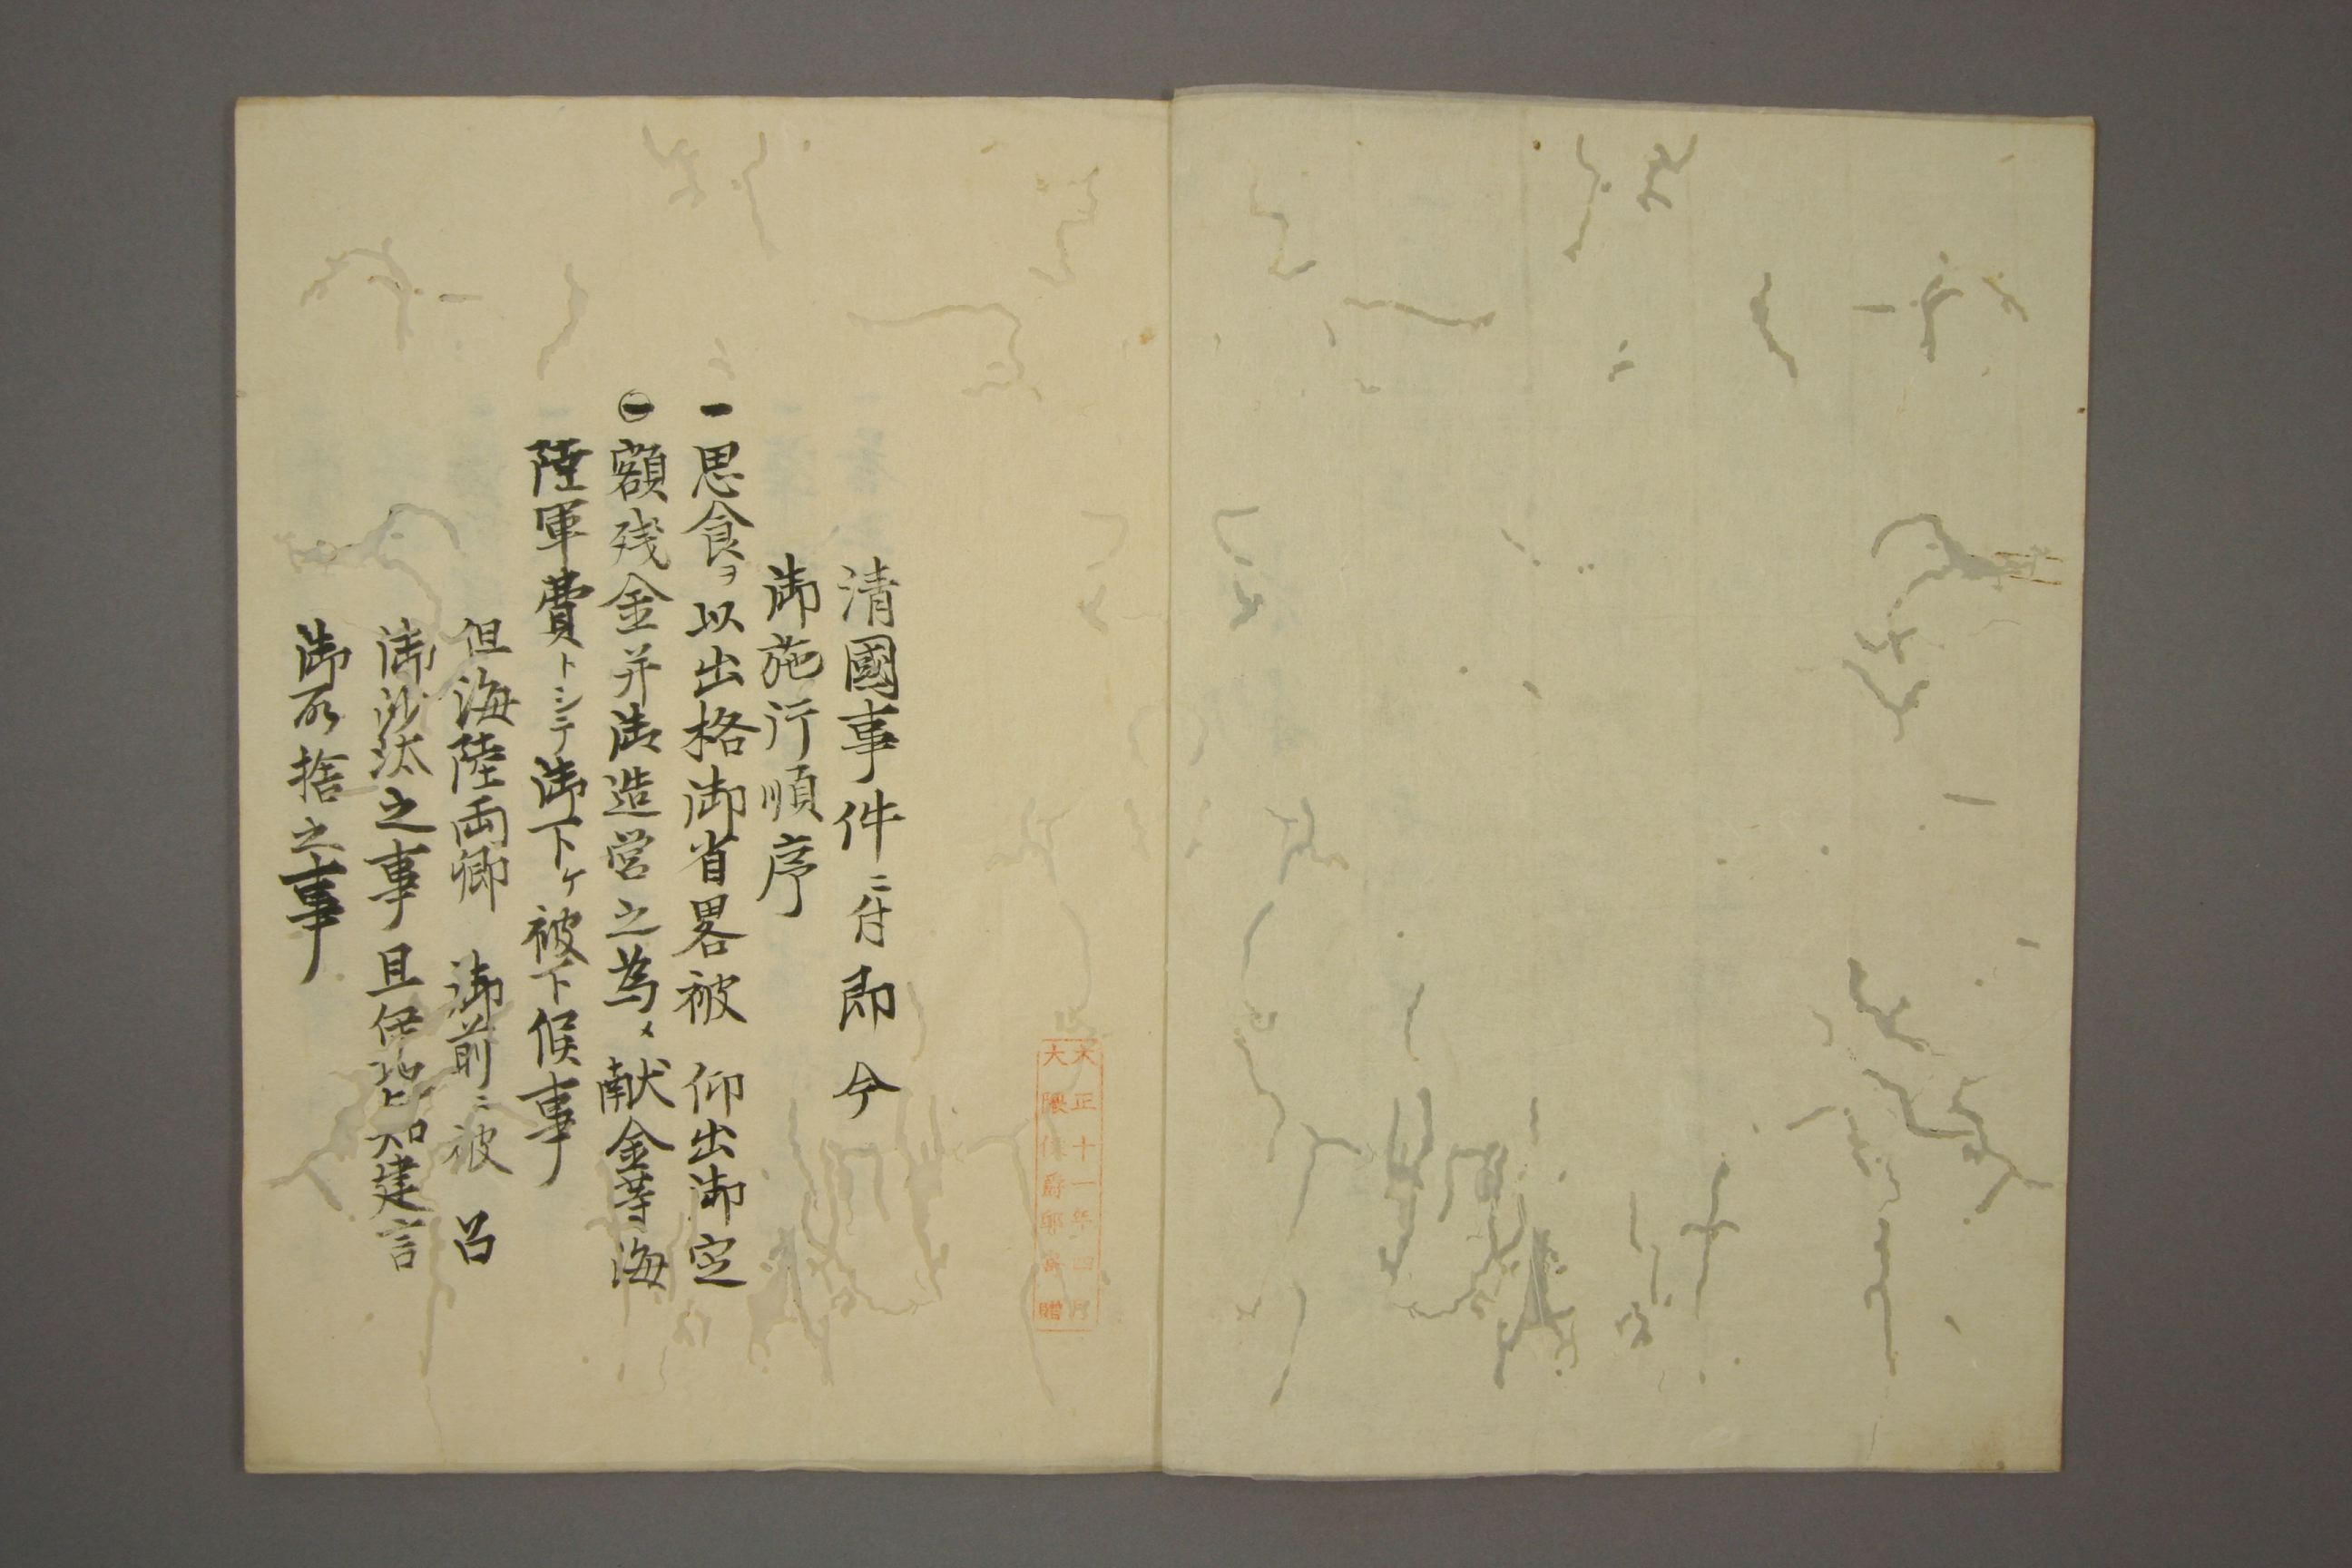 清國事件ニ付即今
御施行順序
一思食ヲ以出格御省畧被 仰出御定
一額残金并御造営之為メ献金等海
陸軍費トシテ御下ケ被下候事
但海陸両卿 御前ニ被 召
御沙汰之事且伊地知建言
御取捨之事
大正十一年四月
大隈侯爵邸寄贈